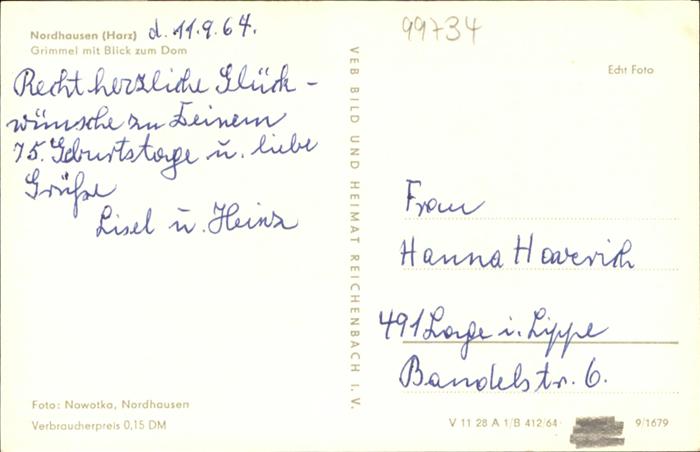 Nordhausen (Harz) d. 11.9.64.
Grimmel mit Blick zum Dom
Recht herzliche Glück-
wünsche zu Deinem
75. Geburtstage u. liebe
Grüße
Lisel u. Heinz
Foto: Nowotka, Nordhausen
Verbraucherpreis 0,15 DM
VEB BILD UND HEIMAT REICHENBACH I. V.
99734
Echt Foto
Frau
Hanna Haverich
491 Lage i. Lippe
Bandelstr. 6.
V 11 28 A 1/B 412/64 9/1679